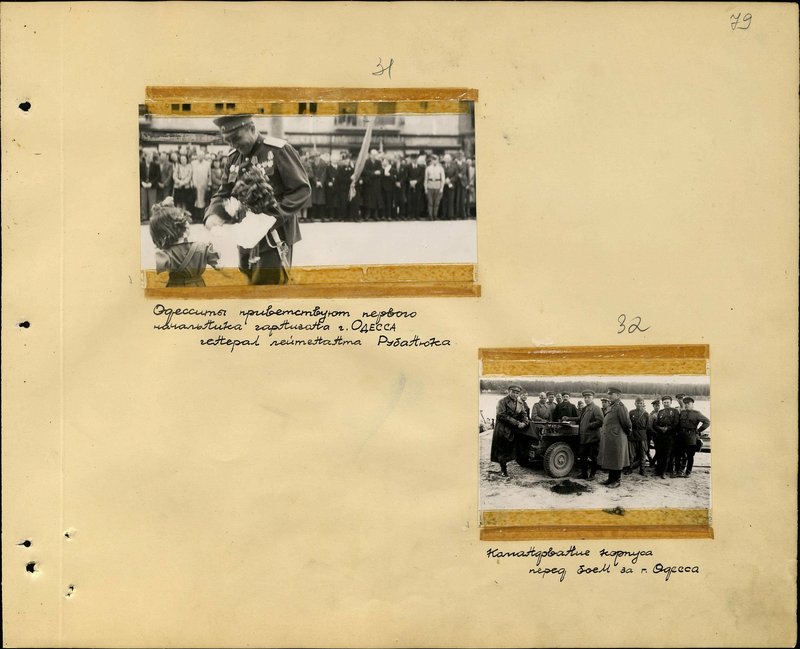 79
31
Одесситы приветствуют первого
начальника гарнизона г. ОДЕССА
генерал лейтенанта Рубанюка
32
Командование корпуса
перед боем за г. Одесса